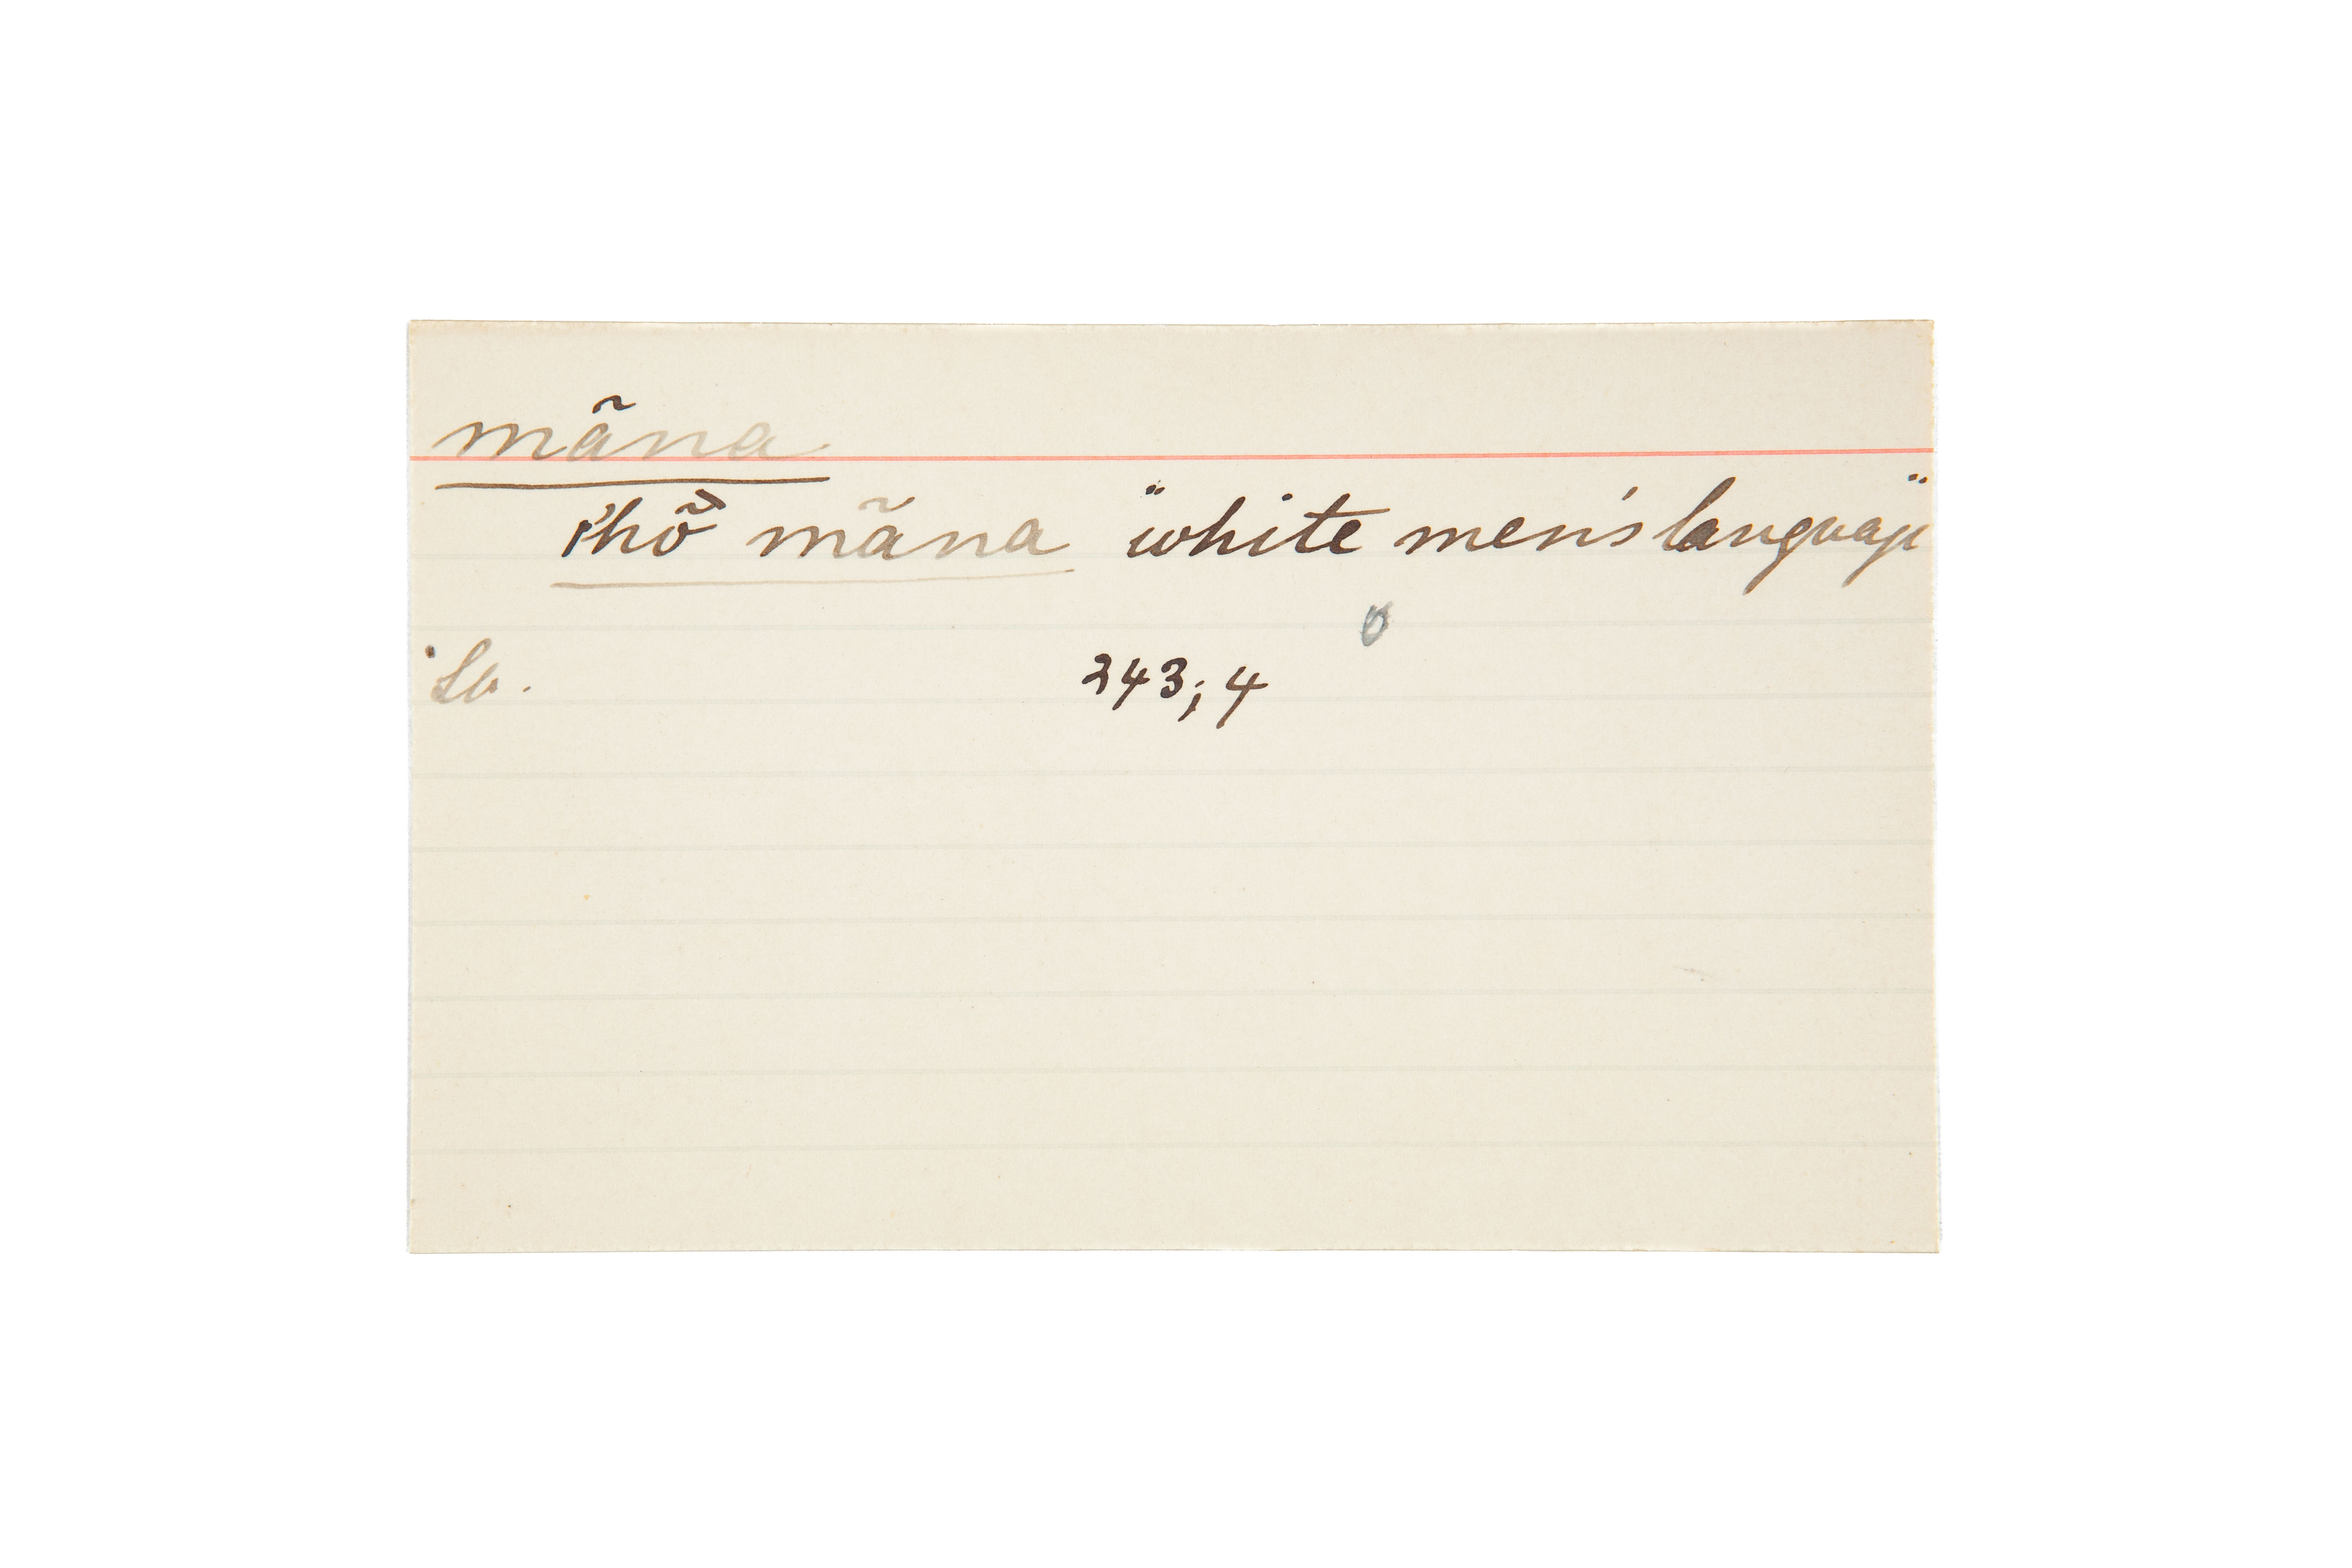 mãna
mãna "white men's language"
243; 4